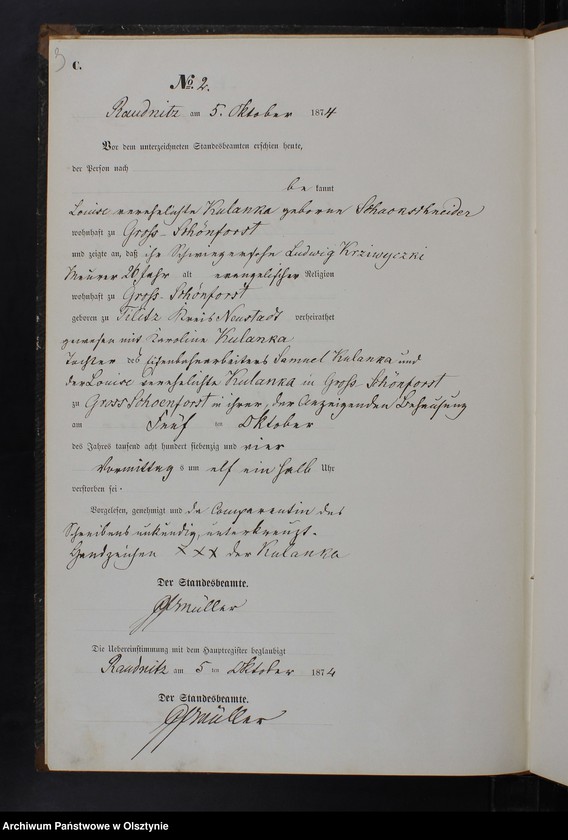 3
C.
No. 2.
Raudnitz am 5. Oktober 1874
Vor dem unterzeichneten Standesbeamten erschien heute,
der Person nach
be kannt
Louise verehelichte Kulanka geborene Schaokschneider
wohnhaft zu Groß-Schönforst
und zeigte an, daß ihr Schwiegersohn Ludwig Krziwyczki
Maurer 26 Jahr alt evangelischer Religion
wohnhaft zu Groß-Schönforst
geboren zu Tilitz Kreis Neustadt verheirathet
gewesen mit Karoline Kulanka
Tochter des Eisenbahnarbeiters Samuel Kulanka und
der Louise verehelichte Kulanka in Groß Schönforst
zu Gross Schoenforst in ihrer, der Anzeigenden Behausung
am Fünf ten Oktober
des Jahres tausend acht hundert siebenzig und vier
Vormittag s um elf ein halb Uhr
verstorben sei.
Vorgelesen, genehmigt und da Comparentin des
Schreibens unkundig, unterkreuzt.
Handzeichen XXX der Kulanka
Der Standesbeamte.
Müller
Die Uebereinstimmung mit dem Hauptregister beglaubigt
Raudnitz am 5 ten Oktober 1874
Der Standesbeamte.
Müller
Archiwum Państwowe w Olsztynie